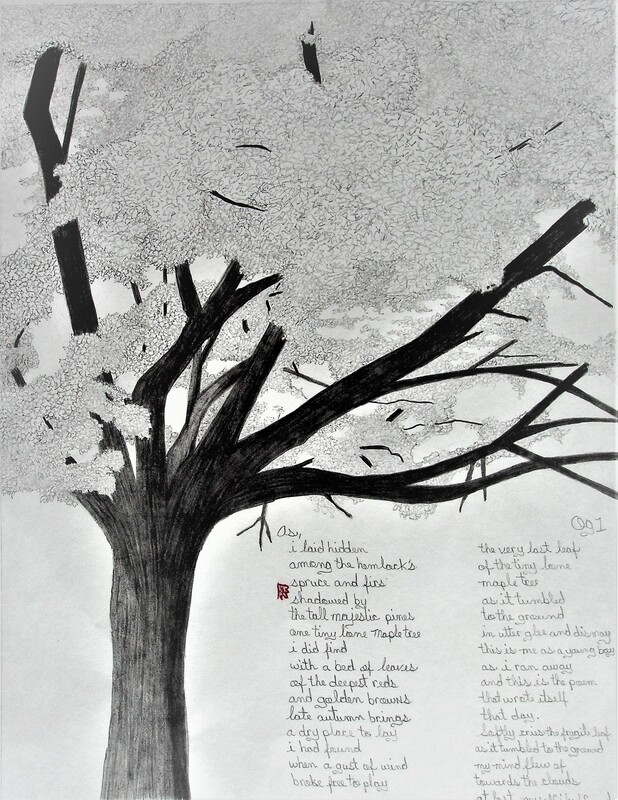 As,,
i laid hidden
among the hemlock's
spruce and firs
shadowed by
the tall majestic pines
one tiny lone Maple tree
i did find
with a bed of leaves
of the deepest reds
and golden browns
late autumn brings
a dry place to lay
i had found
when a gust of wind
broke free to play
the very last leaf
of the tiny lone
maple tree
as it tumbled
to the ground
in utter glee and dismay
this is me as a young boy
as i ran away
and this is the poem
that wrote itself
that day.
Softly cries the fragile leaf
as it tumbled to the ground
my mind flew of
towards the clouds
at last